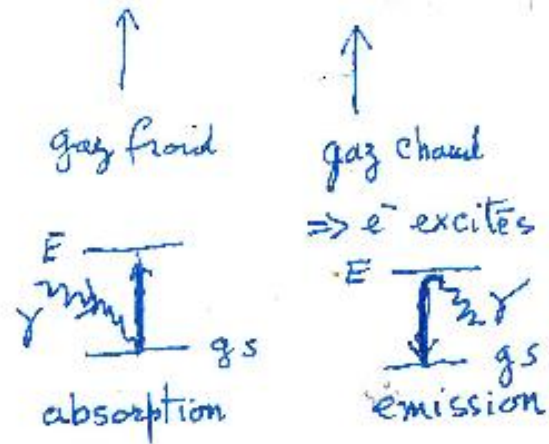 gaz froid
E
γ
gs
absorption
gaz chaud
⇒ e⁻ excités
E
γ
gs
emission